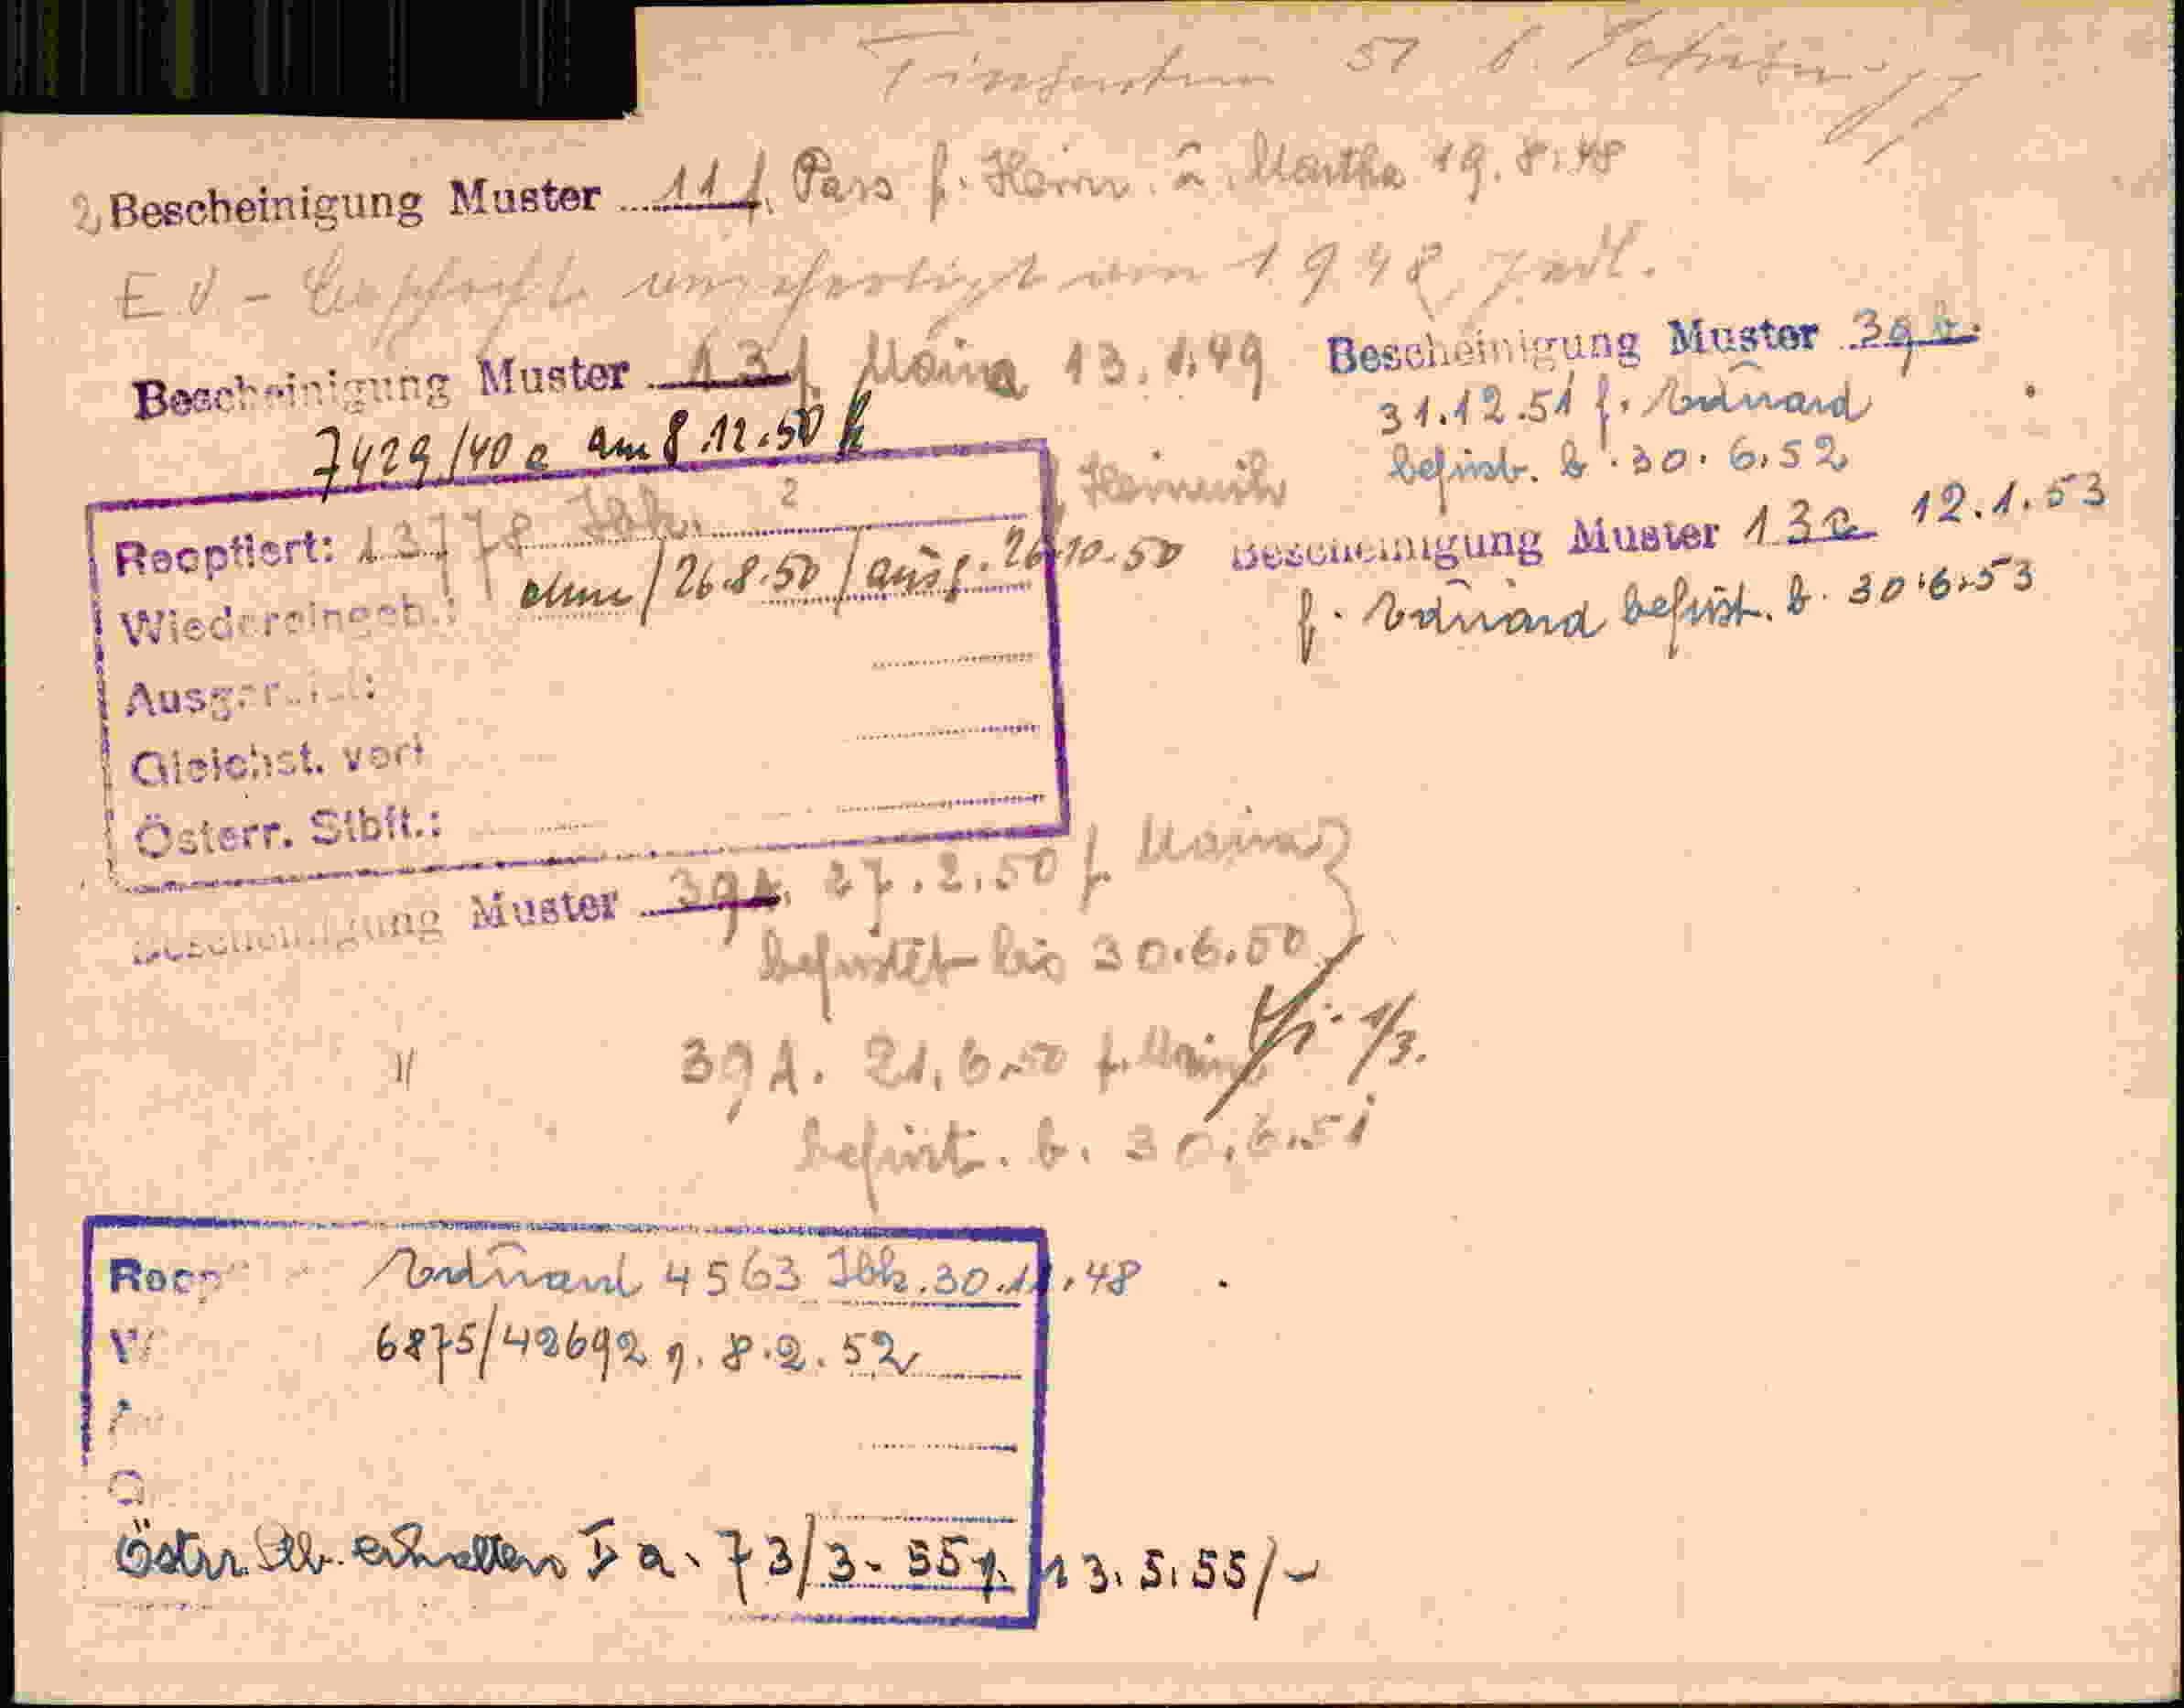 51
2 Bescheinigung Muster 11 f. Pass f. Heinr. u. Martha 19.8.48
1948
Bescheinigung Muster 13 f. Maria 13.1.49
7429/40 e am 8.12.50
Reoptiert: 13778 Ibk. 2 f. Heinrich
ohne / 26.8.50 / ausg. 26.10.50
Wiedereingeb.:
Ausgereist:
Gleichst. verl
Österr. Stbft.:
Bescheinigung Muster 39 A. 27.2.50 f. Maria
befristet bis 30.6.50
1/3.
" 39 A. 21.6.50 f. Maria
befrist. b. 30.6.51
Bescheinigung Muster 39
31.12.51 f. Eduard
befrist. b. 30.6.52
Bescheinigung Muster 13a 12.1.53
f. Eduard befrist. b. 30.6.53
Reop Eduard 4563 Ibk. 30.11.48
6875/42692 v. 8.2.52
Östr. Stb. erhalten I a. 73/3-55 v. 13.5.55/-